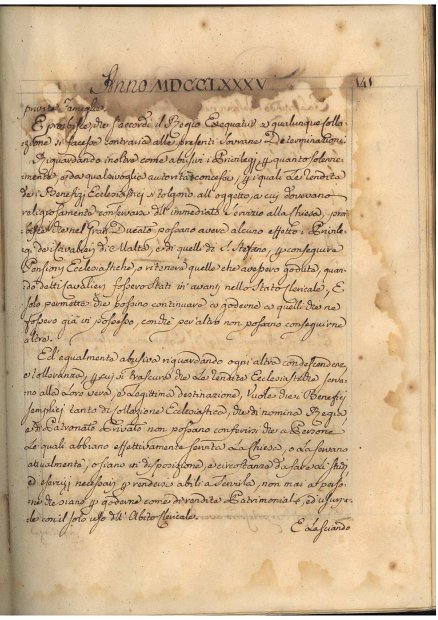 Anno MDCCLXXXV
141
private Famiglie.
E proibisce, che s'accordi il Regio Exequatur a qualunque colla-
zione si facesse contraria alle presenti Sovrane Determinazioni.
Riguardando inoltre come abusivi i Privilegj, quanto solenne-
mente, o da qualsivoglia autorità concessi, p i quali le Rendite
de i Benefizj Ecclesiastici si tolgono all'oggetto, a cui dovevano
religiosamente conservarsi dell'immediato servizio alla Chiesa, proi-
bisce che nel Gran Ducato possano avere alcuno effetto i Privile-
gj, de i Cavalieri di Malta, e di quelli di S. Stefano, p conseguire
Pensioni Ecclesiastiche, o ritenere quelle che avessero godute, quan-
do detti Cavalieri fossero stati in avanti nello Stato Clericale, E
solo permette che possano continuare a goderne a quelli che ne
fossero già in possesso, con che per altro non possano conseguirne
altre.
Ed egualmente abusiva riguardando ogni altra condescendenza,
e tolleranza, p cui si trascuri che le rendite Ecclesiastiche servi-
no alla loro vera, e legittima destinazione, Vuole che i Benefizj
semplici tanto di collazione Ecclesiastica, che di nomina Regia,
e di Patronato Privato non possano conferirsi che a Persone
le quali abbiano effettivamente servita la Chiesa, o la servano
attualmente, o siano in disposizione, e circostanza da fare i studj,
ed esercizj necessari p rendersi abili a servirla, non mai a perso-
ne che siano p goderne come di rendita Patrimoniale, ed usur-
le con il solo uso dell'Abito Clericale.
E lasciando